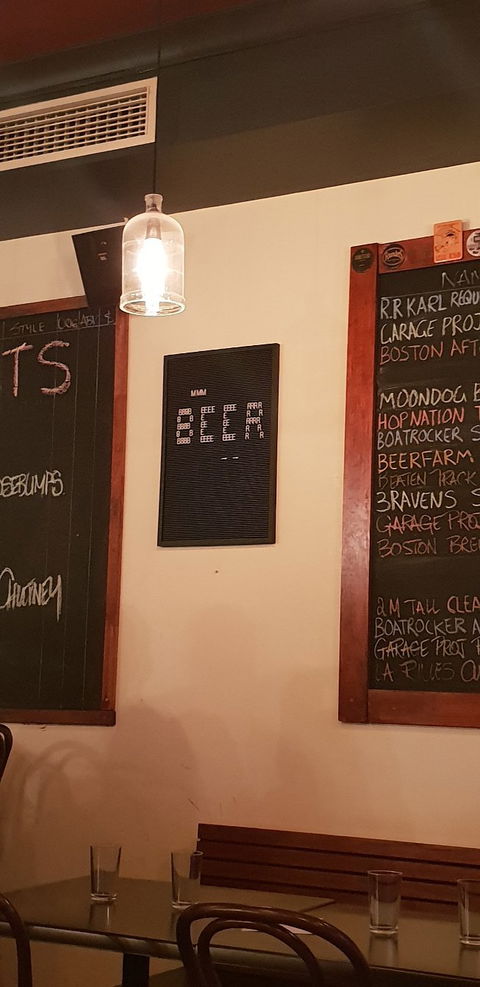 STYLE ABV $
TS
CHUTNEY
MMM
BEER
R.R KARL
GARAGE PROJ
BOSTON AFT
MOONDOG B
HOP NATION T
BOATROCKER S
BEERFARM
BEATEN TRACK
3RAVENS S
GARAGE PROJ
BOSTON BRE
2M TALL CLEA
BOATROCKER A
GARAGE PROJ P